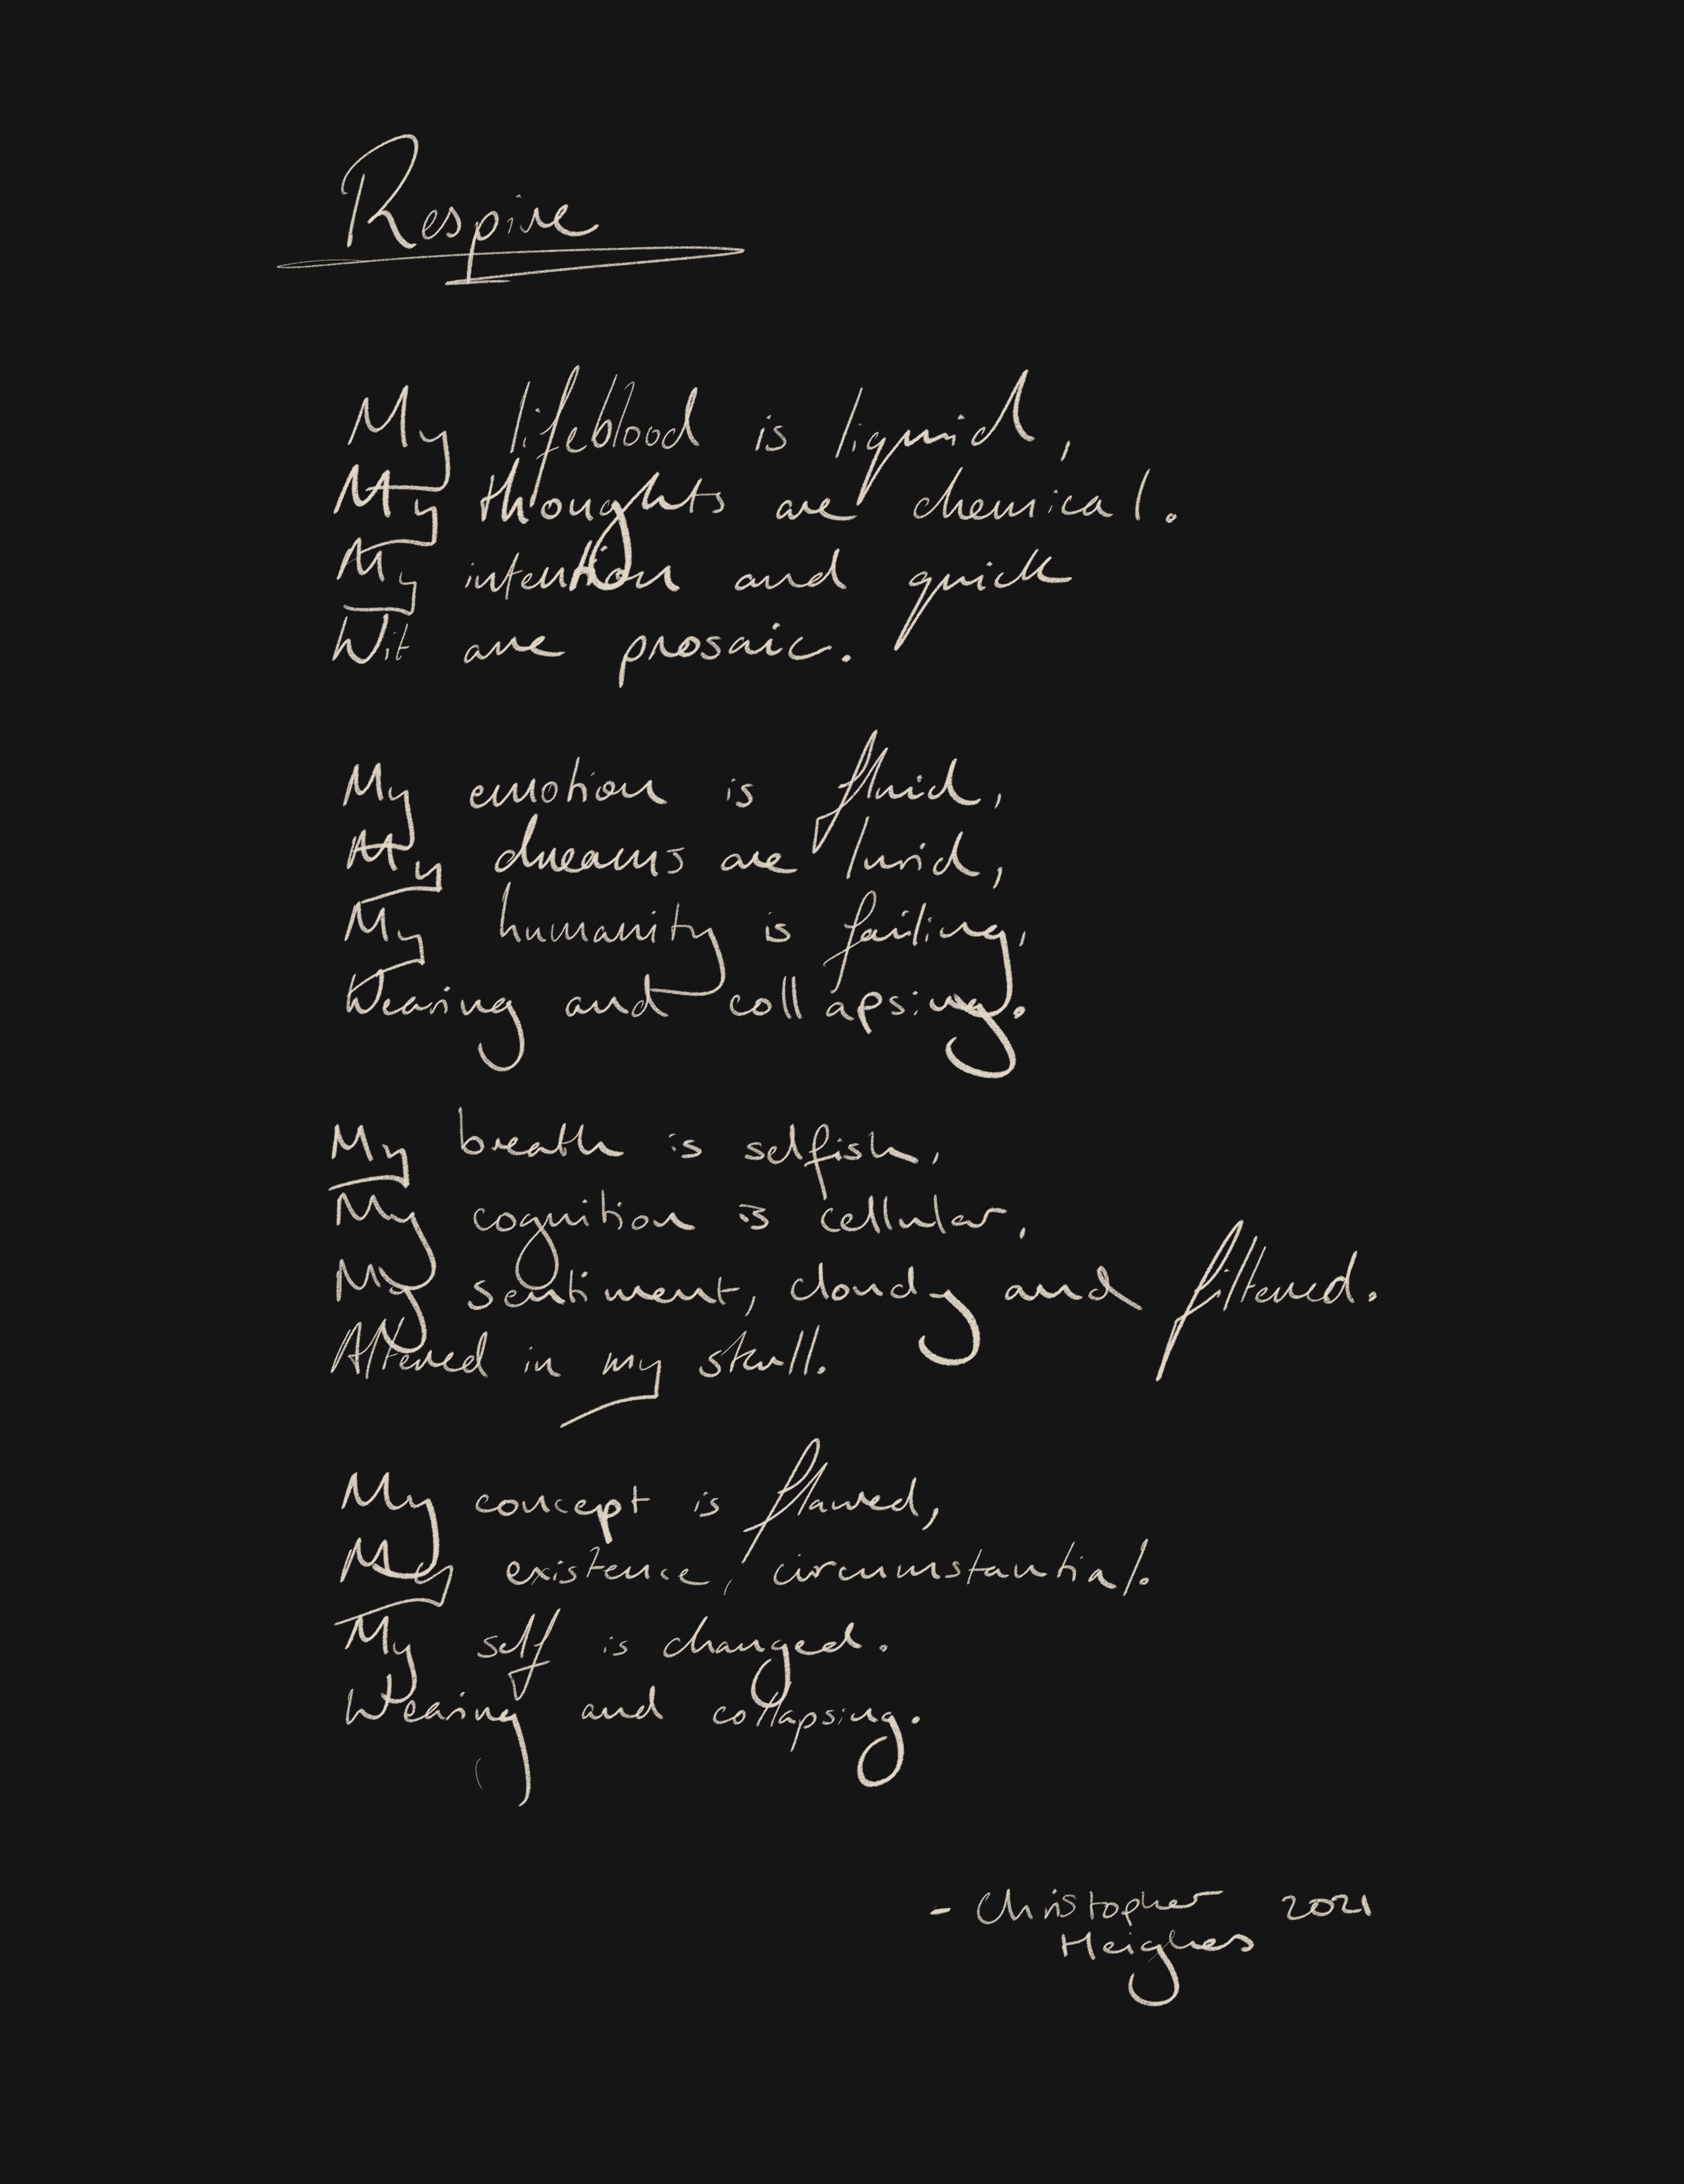 Respire
My lifeblood is liquid,
My thoughts are chemical.
My intention and quick
Wit are prosaic.
My emotion is fluid,
My dreams are lurid,
My humanity is failing,
Wearing and collapsing.
My breath is selfish,
My cognition is cellular,
My sentiment, cloudy and filtered.
Altered in my skull.
My concept is flawed,
My existence, circumstantial.
My self is changed.
Wearing and collapsing.
- Christopher 2021
Heighes